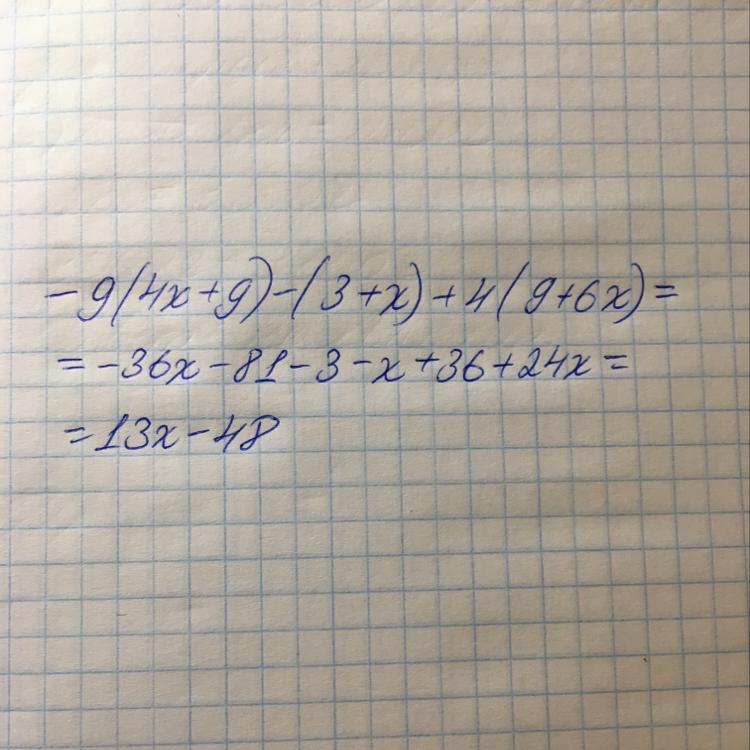 -9(4x+9)-(3+x)+4(9+6x)=
=-36x-81-3-x+36+24x=
=13x-48